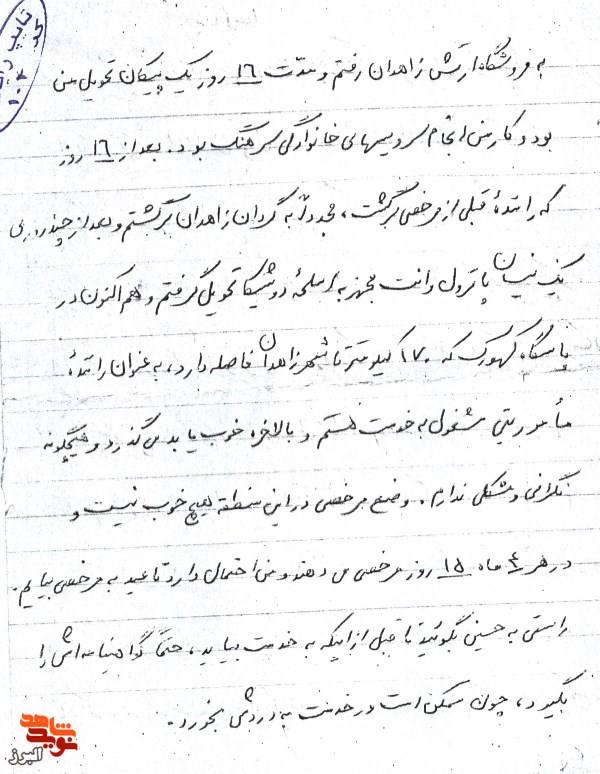 به فروشگاه ارتش زاهدان رفتم و مدت ۱۶ روز یک پیکان تحویل من
بود و کار من انجام سرویسهای خانوادگی سرهنگ بود. بعد از ۱۶ روز
که رانندهٔ قبلی از مرخصی برگشت، مجدداً به گردان زاهدان برگشتم و بعد از چند روزی
یک نیسان پاترول وانت مجهز به اسلحهٔ دوشیکا تحویل گرفتم و هم اکنون در
پاسگاه کهورک که ۱۷۰ کیلومتر تا شهر زاهدان فاصله دارد، به عنوان رانندهٔ
مأموریتی مشغول به خدمت هستم و بالاخره خوب یا بد می گذرد و هیچگونه
نگرانی و مشکلی ندارم. وضع مرخصی در این منطقه هیچ خوب نیست و
در هر ۴ ماه ۱۵ روز مرخصی می دهند و من احتمال دارد تا عید به مرخصی بیایم.
راستی به حسین بگوئید تا قبل از اینکه به خدمت بیاید، حتماً گواهینامه اش را
بگیرد، چون ممکن است در خدمت به دردش بخورد.
تایپ
نوید شاهد
البرز